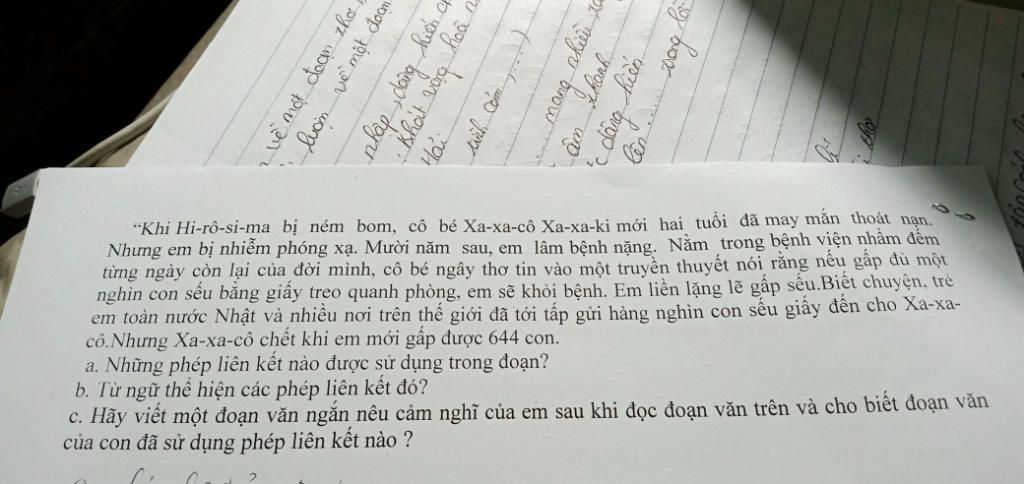 về một đoạn thơ
luận về một đoạn
đáp, dâng hiến
khát vọng hoà
tình cảm, ...)
mang nhiều
âm thanh
dâng hiến
lên ... rong
"Khi Hi-rô-si-ma bị ném bom, cô bé Xa-xa-cô Xa-xa-ki mới hai tuổi đã may mắn thoát nạn.
Nhưng em bị nhiễm phóng xạ. Mười năm sau, em lâm bệnh nặng. Nằm trong bệnh viện nhẩm đếm
từng ngày còn lại của đời mình, cô bé ngây thơ tin vào một truyền thuyết nói rằng nếu gấp đủ một
nghìn con sếu bằng giấy treo quanh phòng, em sẽ khỏi bệnh. Em liền lặng lẽ gấp sếu.Biết chuyện, trẻ
em toàn nước Nhật và nhiều nơi trên thế giới đã tới tấp gửi hàng nghìn con sếu giấy đến cho Xa-xa-
cô.Nhưng Xa-xa-cô chết khi em mới gấp được 644 con.
a. Những phép liên kết nào được sử dụng trong đoạn?
b. Từ ngữ thể hiện các phép liên kết đó?
c. Hãy viết một đoạn văn ngắn nêu cảm nghĩ của em sau khi đọc đoạn văn trên và cho biết đoạn văn
của con đã sử dụng phép liên kết nào ?